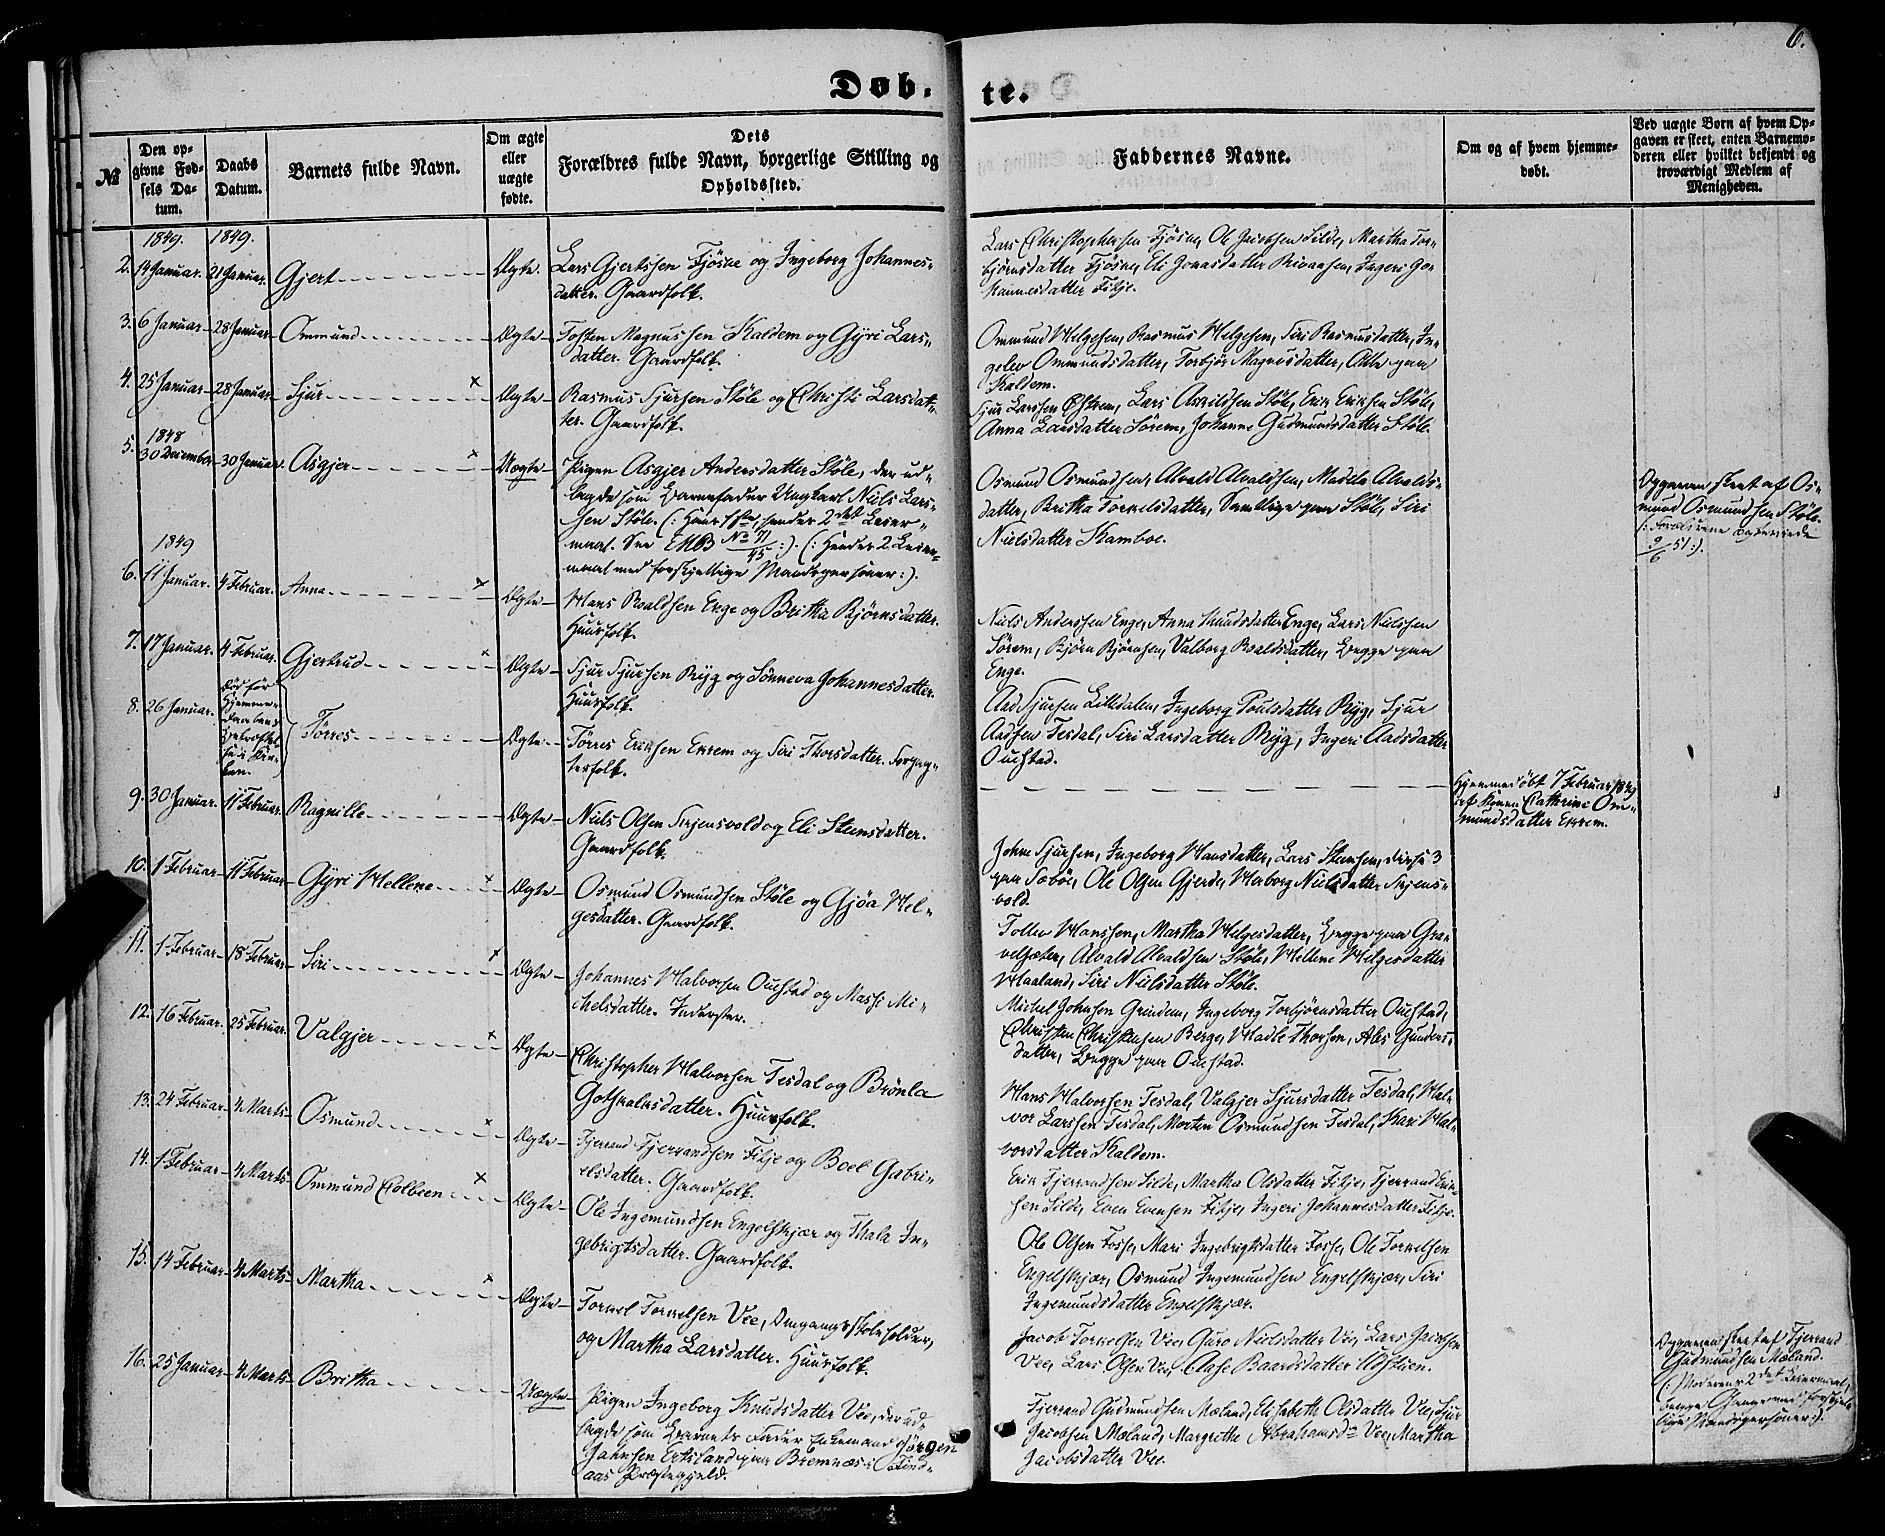 6.
Døb. te.
№
Den opgivne Fødsels Datum.
Daabs Datum.
Barnets fulde Navn.
Om ægte eller uægte fødte.
Dets Forældres fulde Navn, borgerlige Stilling og Opholdssted.
Faddernes Navne.
Om og af hvem hjemmedøbt.
Ved uægte Børn af hvem Opgaven er skeet, enten Barnemoderen eller hvilket bekjendt og troværdigt Medlem af Menigheden.
1849. 1849.
2. 14 Januar. 21 Januar. Gjert Ægte.
Lars Gjertssen Fjösne og Ingeborg Johannes-
datter. Gaardfolk.
Lars Christophersen Fjösne, Ole Jacobsen Silde, Martha Tor-
björnsdatter Fjösne, Eli Jonasdatter, Ingeri Jo-
hannesdatter Fikje.
3. 6 Januar 28 Januar Ommund Ægte
Tosten Magnussen Kaldem og Gyri Lars-
datter. Gaardfolk.
Ommund Helgesen, Rasmus Helgesen, Siri Rasmusdatter, In-
gelev Ommundsdatter, Torbjör Magnisdatter, Alle paa
Kaldem.
4. 25 Januar 28 Januar Sjur x Ægte
Rasmus Sjursen Stöle og Christi Larsdat-
ter. Gaardfolk.
Sjur Larssen, Lars Askildsen Stöle, Erik Eriksen Stöle,
Anna Larsdatter Sörem, Johanne Gudmundsdatter Stöle.
1848
5. 30 December 30 Januar. Asgjer x Uægte
Pigen Asgjer Andersdatter Stöle, der ud-
lagde som Barnefader Ungkarl Niels Lars-
sen Stöle. (: hendes 2det Leier-
maal. See No 71/45 :). (: Hendes 2 Leier-
maal med forskjellige Mandspersoner :).
Osmund Osmundsen, Alvald Alvaldsen, Madela Alvalds-
datter, Britha Torkelsdatter, Samtlige paa Stöle, Siri
Nielsdatter Kamboe.
Opgaven skeet af Os-
mund Osmundsen Stöle.
(: Forældrene
9/6 51 :).
1849
6. 11 Januar. 4 Februar. Anna x Ægte
Hans Roaldsen Enge og Britha Bjørnsdatter.
Huusfolk.
Niels Anderssen Enge, Anna Knudsdatter Enge, Lars Nielssen
Sörem, Björn Björnsen, Valborg Roaldsdatter, Begge paa
Enge.
7. 17 Januar. 4 Februar. Gjertrud x Ægte
Sjur Sjursen Ryg og Sönneva Johannesdatter.
Huusfolk.
Aad Sjursen Lilledalen, Ingeborg Poulsdatter Ryg, Sjur
Aadsen Tesdal, Siri Larsdatter Ryg, Ingeri Aadsdatter
Ouestad.
8. 26 Januar.
död för
Hjemme-
daabens
Bekræftel-
se i Kir-
ken.
Törres Ægte
Törres Eriksen Ekrem og Siri Thorsdatter. Forpag-
terfolk.
Hjemmedöbt 7 Februar 1849
af Konen Cathrine Om-
mundsdatter Ekrem.
9. 30 Januar. 11 Februar. Ragnille Ægte
Niels Olsen Skjensvold og Eli Steensdatter.
Gaardfolk.
Johne Sjursen, Ingeborg Hansdatter, Lars Steensen, disse 3
paa Söböe, Ole Olsen Gjerde, Herborg Nielsdatter Skjens-
vold.
10. 1 Februar 11 Februar Gyri Hellene x Ægte
Osmund Osmundsen Stöle og Gjöa Hel-
gesdatter. Gaardfolk.
Tollev Hanssen, Martha Helgesdatter, Begge paa Gra-
velsæter, Alvald Alvaldsen Stöle, Hellene Helgesdatter
Haaland, Siri Nielsdatter Stöle.
11. 1 Februar 18 Februar Siri x Ægte
Johannes Halvorsen Ouestad og Massi Mi-
chelsdatter. Inderster.
Michel Johnsen Grindem, Ingeborg Torbjörnsdatter Ouestad,
Christen Christensen Berge, Hadle Thorsen, Ales Gunders-
datter, Begge paa Ouestad.
12. 16 Februar. 25 Februar. Valgjer x Ægte
Christopher Halvorsen Tesdal og Brönla
Gothskalksdatter. Huusfolk.
Hans Halvorsen Tesdal, Valgjer Sjursdatter Tesdal, Hal-
vor Larssen Tesdal, Morten Osmundsen Tesdal, Kari Hal-
vorsdatter Kaldem.
13. 24 Februar 4 Marts Osmund x Ægte
Fjerrand Fjerrandsen Fikje og Boel Gabri-
elsdatter. Gaardfolk.
Erik Fjerrandsen Silde, Martha Olsdatter Fikje, Fjerrand Erik-
sen Silde, Even Evensen Fikje, Ingeri Johannesdatter Fikje.
14. 1 Februar 4 Marts Ommund Colbeen x Ægte
Ole Ingemundsen Engelskjær og Thala In-
gebrigtsdatter. Gaardfolk.
Ole Olsen Fosse, Mari Ingebrigtsdatter Fosse, Ole Torkelsen
Engelskjær, Osmund Ingemundsen Engelskjær, Siri
Ingemundsdatter Engelskjær.
15. 14 Februar 4 Marts Martha x Ægte
Torkel Torkelsen Vee, Omgangsskoleholder,
og Martha Larsdatter. Huusfolk.
Jacob Torkelsen Vee, Guro Nielsdatter Vee, Lars Jacobsen
Vee, Lars Olsen Vee, Aase Baardsdatter Udstien.
16. 25 Januar 4 Marts Britha Uægte
Pigen Ingeborg Knudsdatter Vee, der ud-
lagde som Barnets Fader Enkemand Jörgen
Jahnsen Erksland paa Bremnæs i Find-
aas Præstegjeld.
Fjerrand Gudmundsen Mæland, Elisabeth Olsdatter Vee, Sjur
Jacobsen Mæland, Margrethe Abrahamsdr Vee, Martha
Jacobsdatter Vee.
Opgaven skeet af Fjerrand
Gudmundsen Mæland.
(: Moderens 2det Leiermaal,
begge Gange med forskjel-
lige Mandspersoner :).